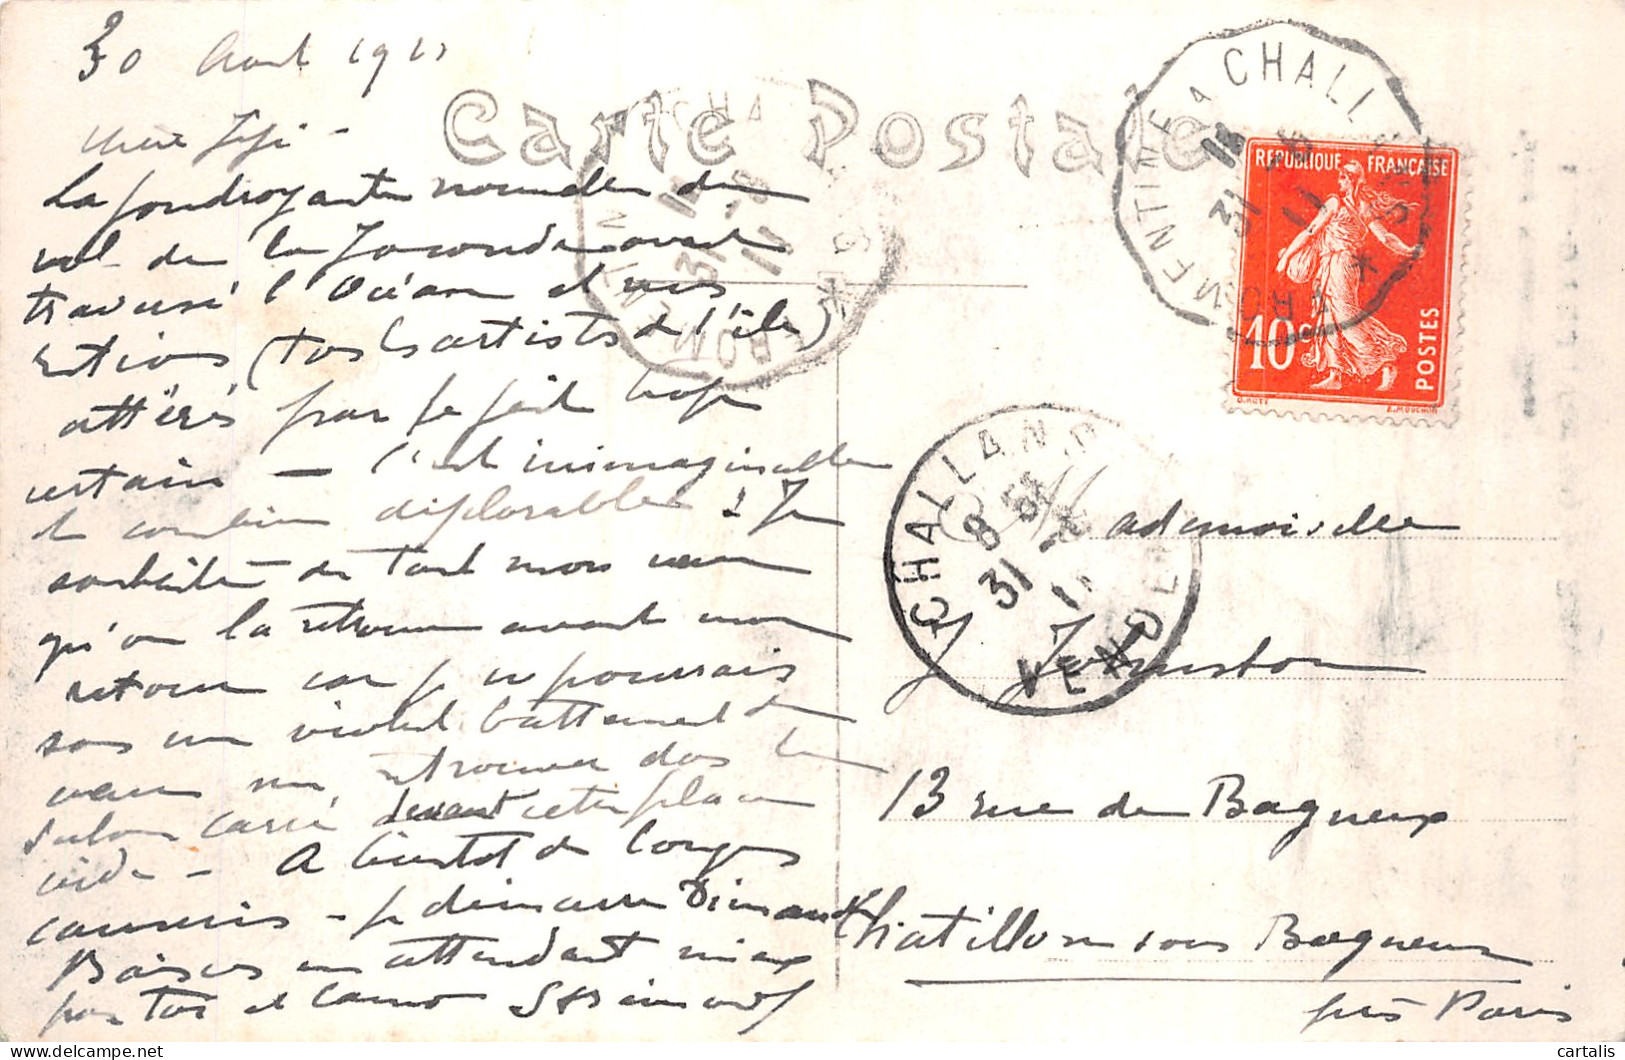 30 Aout 1911
Chère Fifi -
La foudroyante nouvelle du
vol de la Joconde avait
traversé l'Océan et nous
étions (tous les artistes de l'île)
attérés par le fait trop
certain - C'est inimaginable
et combien déplorable ! Je
souhaite de tout mon cœur
qu'on la retrouve avant mon
retour car je ne pourrais
sans un violent battement de
cœur me retrouver dans le
salon carré devant cette place
vide - A bientôt de longues
causeries - je démarre Dimanche
Baisers en attendant mieux
pour toi et
Carte Postale
FROMENTINE A CHALLANS
31
11
REPUBLIQUE FRANÇAISE
10c
POSTES
O. ROTY
E. MOUCHON
CHALLANS
8
31
11
VENDEE
Mademoiselle
J Johnston
13 rue de Bagneux
Chatillon sous Bagneux
près Paris
cartalis